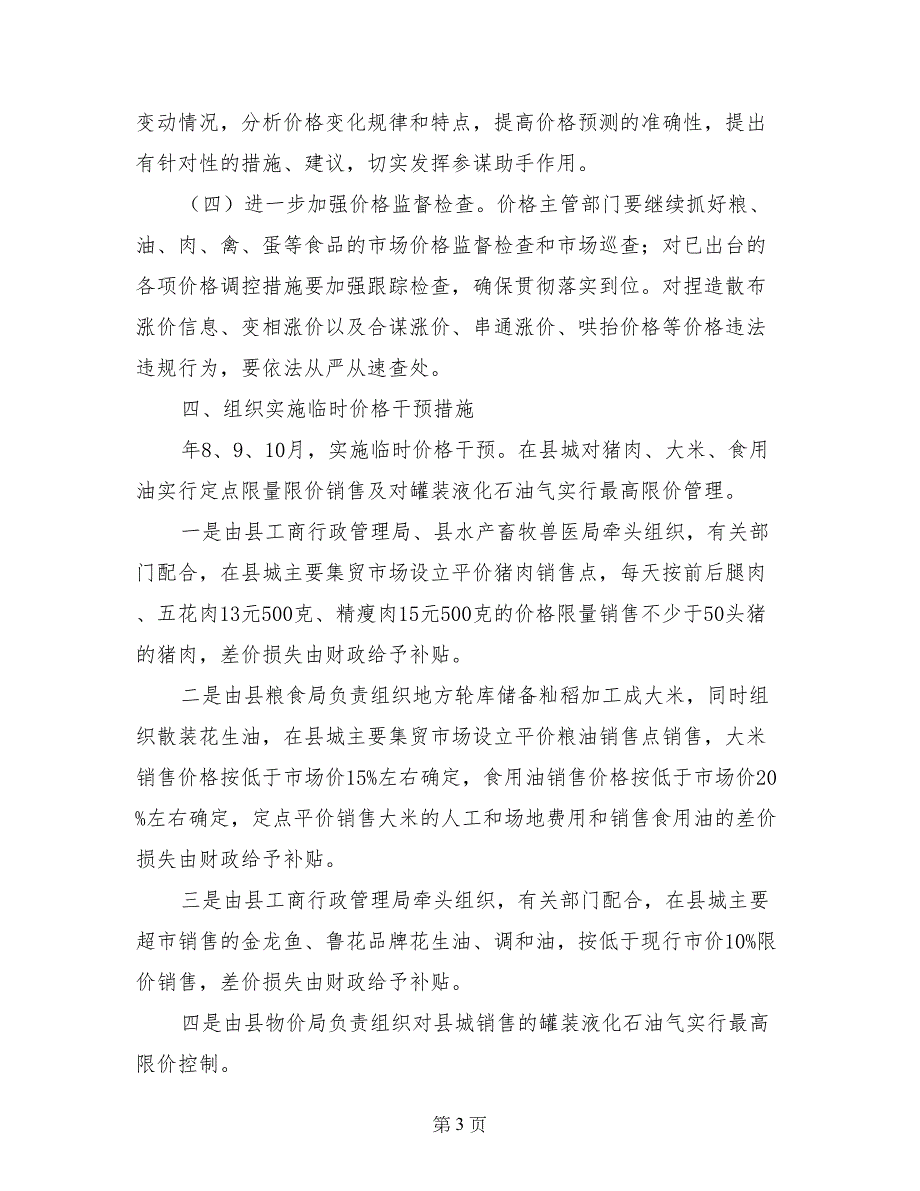 变动情况，分析价格变化规律和特点，提高价格预测的准确性，提出
有针对性的措施、建议，切实发挥参谋助手作用。
（四）进一步加强价格监督检查。价格主管部门要继续抓好粮、
油、肉、禽、蛋等食品的市场价格监督检查和市场巡查；对已出台的
各项价格调控措施要加强跟踪检查，确保贯彻落实到位。对捏造散布
涨价信息、变相涨价以及合谋涨价、串通涨价、哄抬价格等价格违法
违规行为，要依法从严从速查处。
四、组织实施临时价格干预措施
年8、9、10月，实施临时价格干预。在县城对猪肉、大米、食用
油实行定点限量限价销售及对罐装液化石油气实行最高限价管理。
一是由县工商行政管理局、县水产畜牧兽医局牵头组织，有关部
门配合，在县城主要集贸市场设立平价猪肉销售点，每天按前后腿肉
、五花肉13元500克、精瘦肉15元500克的价格限量销售不少于50头猪
的猪肉，差价损失由财政给予补贴。
二是由县粮食局负责组织地方轮库储备籼稻加工成大米，同时组
织散装花生油，在县城主要集贸市场设立平价粮油销售点销售，大米
销售价格按低于市场价15%左右确定，食用油销售价格按低于市场价20
%左右确定，定点平价销售大米的人工和场地费用和销售食用油的差价
损失由财政给予补贴。
三是由县工商行政管理局牵头组织，有关部门配合，在县城主要
超市销售的金龙鱼、鲁花品牌花生油、调和油，按低于现行市价10%限
价销售，差价损失由财政给予补贴。
四是由县物价局负责组织对县城销售的罐装液化石油气实行最高
限价控制。
第 3 页